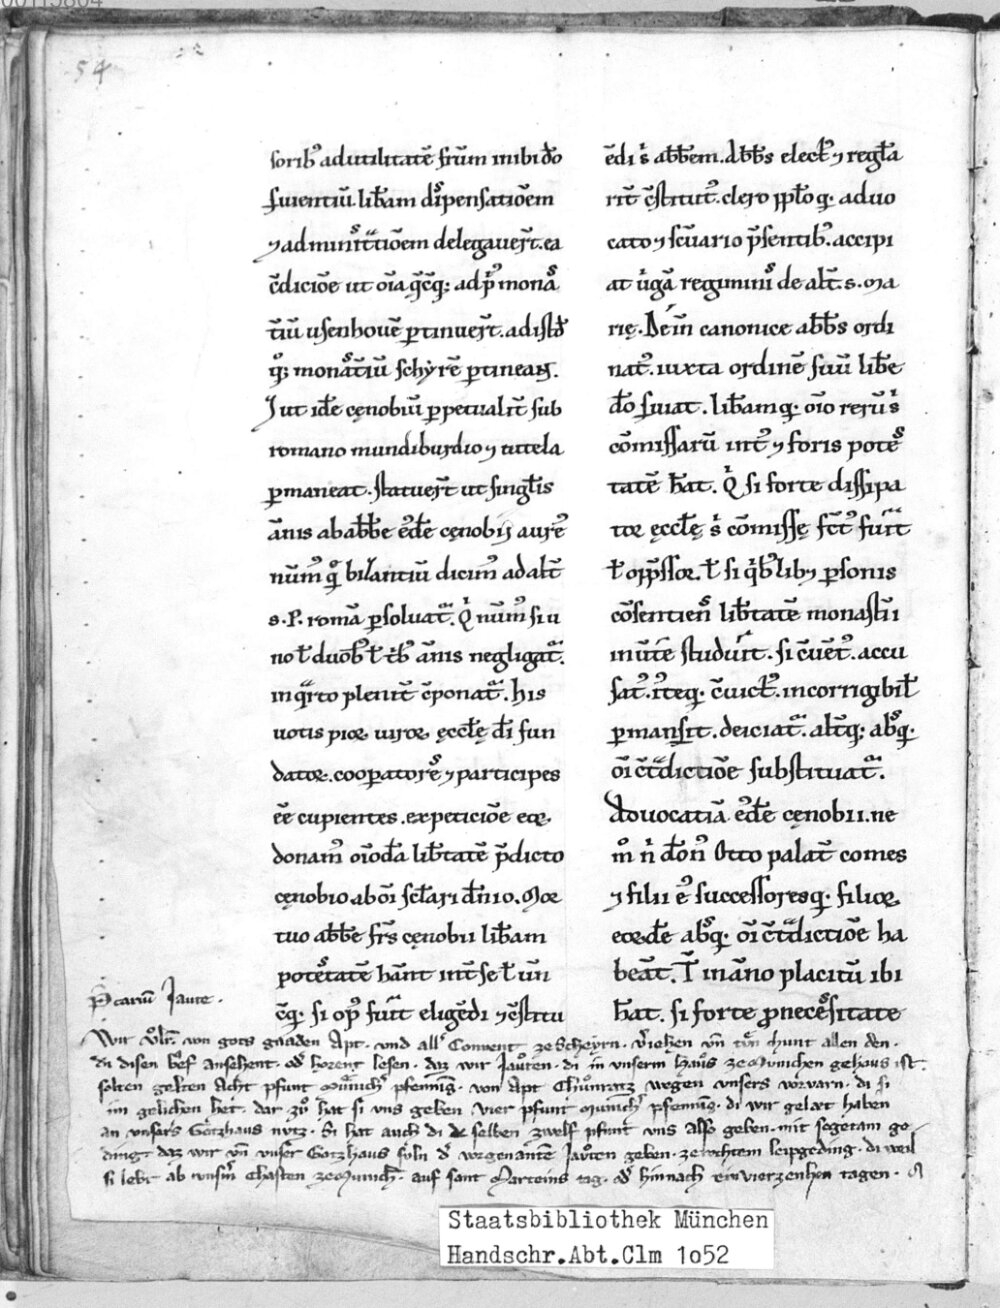 54
sorib᷒ ad utilitatē fr̄um inibi dō
seruientiū. lib̄am dis̄pensatiōem
⁊ administ̄tiōem delegauer̄t. ea
c̄diciōe ut oīa q̄cq̄; ad p̄us monas̄
t̄iū usenhouē p̄tinuer̄t. ad istd̄
q̊; monast̄iū schyrē p̄tineant.
Et ut id̄e cęnobiū p̄petualit̄ sub
romano mundiburdio ⁊ tutela
p̄maneat. statuer̄t ut singl̄is
ān̄is ab abb̄e eiusd̄e cęnobii aure᷒
num̄us qi bisantiū dicim᷒ ad alt̄
s. P. romā p̄soluat᷑. Qi num̄us si u
no ł duob᷒ ł trib᷒ ān̄is negligat᷑.
in qᵃrto plenit̄ c̄ponat᷑. his
uotis pioꝝ uiroꝝ ęccl̄ę d̄i fun
datoꝝ. coop̄atores ⁊ participes
eē̄ cupientes. ex peticiōe eoꝝ
donam᷒ oīmod̄a lib̄tatē p̄dicto
cęnobio ab oī scl̄ari dn̄io. Mor
tuo abb̄e fr̄s cęnobii lib̄am
potestatē han̄t int̄ se ł un̄
c̄q;. si op᷒ fuit̄ eligēdi ⁊ c̄stitu
ēdi s' abb̄em. Abb̄s elect᷒ ⁊ regl̄a
rit̄ c̄stitut᷒. clero ppl̄oq;. aduo
cato ⁊ scuario p̄sentib᷒. accipi
at uirgā regiminis de alt̄. s. Ma
rię. Dein̄ canonice abb̄s ordi
nat᷒. iuxta ordinē suū lib̄e
dō seruiat. lib̄amq; oīo rerū s'
cōmissarū int᷒ ⁊ foris potes
tatē hēat. Qi si forte dissipa
tor ęccl̄ę s' cōmissę fct᷒ fuit̄
ł opp̄ssor. ł si q'b̄lib᷒ p̄sonis
cōsentiens lib̄tatē monast̄ii
inūte studuit̄. si c̄uēt᷒. accu
sat᷒. it̄eq;. c̄uict᷒. incorrigibil̄
p̄mans̄it. deiciat᷑. alt̄q; absq;
oī c̄t̄dictiōe substituat᷑.
Aduocatiā eiusd̄e cęnobii. ne
m̊ n' d̄on᷒ Otto palat̄ comes
⁊ filii ei᷒ successoresq; filioꝝ
eorūd̄e absq; oī c̄t̄dictiōe ha
beāt. T̄ in āno placitū ibi
hēat. si forte p̄ necessitate
P̄cariū Jaute.
Wir Vlr̄. von gots gnaden Apt. vnd all᷒ Conuent ze Scheyrn. v̄iehen vn̄ tůn chunt allen den.
di disen b̄ef ansehent. od̄ horent lesen. daz wir Jauten. di in vnserm Haus ze Munichen gehaus ist.
solten gelten Acht pfunt Munich᷒ pfenning. von Apt Chunratz wegen vnsers vorvarn. di si
im gelichen het. dar zu hat si vns geben vier pfunt Munich᷒ pfenning. di wir gelaet haben
an vnsers Gotzhaus nutz. Si hat auch di selben zwelf pfunt vns also geben. mit sogetam ge
ding. daz wir vn̄ vnser Gotzhaus suln d̄ vorgenanten Jauten geben. ze rechtem leipgeding. di weil
si lebt ab vnsm̄ Chasten ze Munich. auf sant Marteins tag. od̄ hinnach in vierzenhen tagen.
Staatsbibliothek München
Handschr.Abt.Clm 1o52